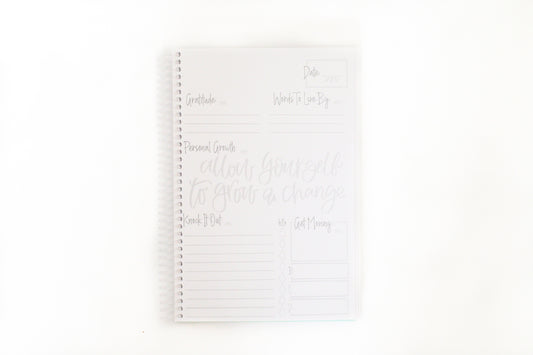 Date
Gratitude
Words To Live By
Personal Growth
allow yourself
to grow & change
Knock It Out
Get Money